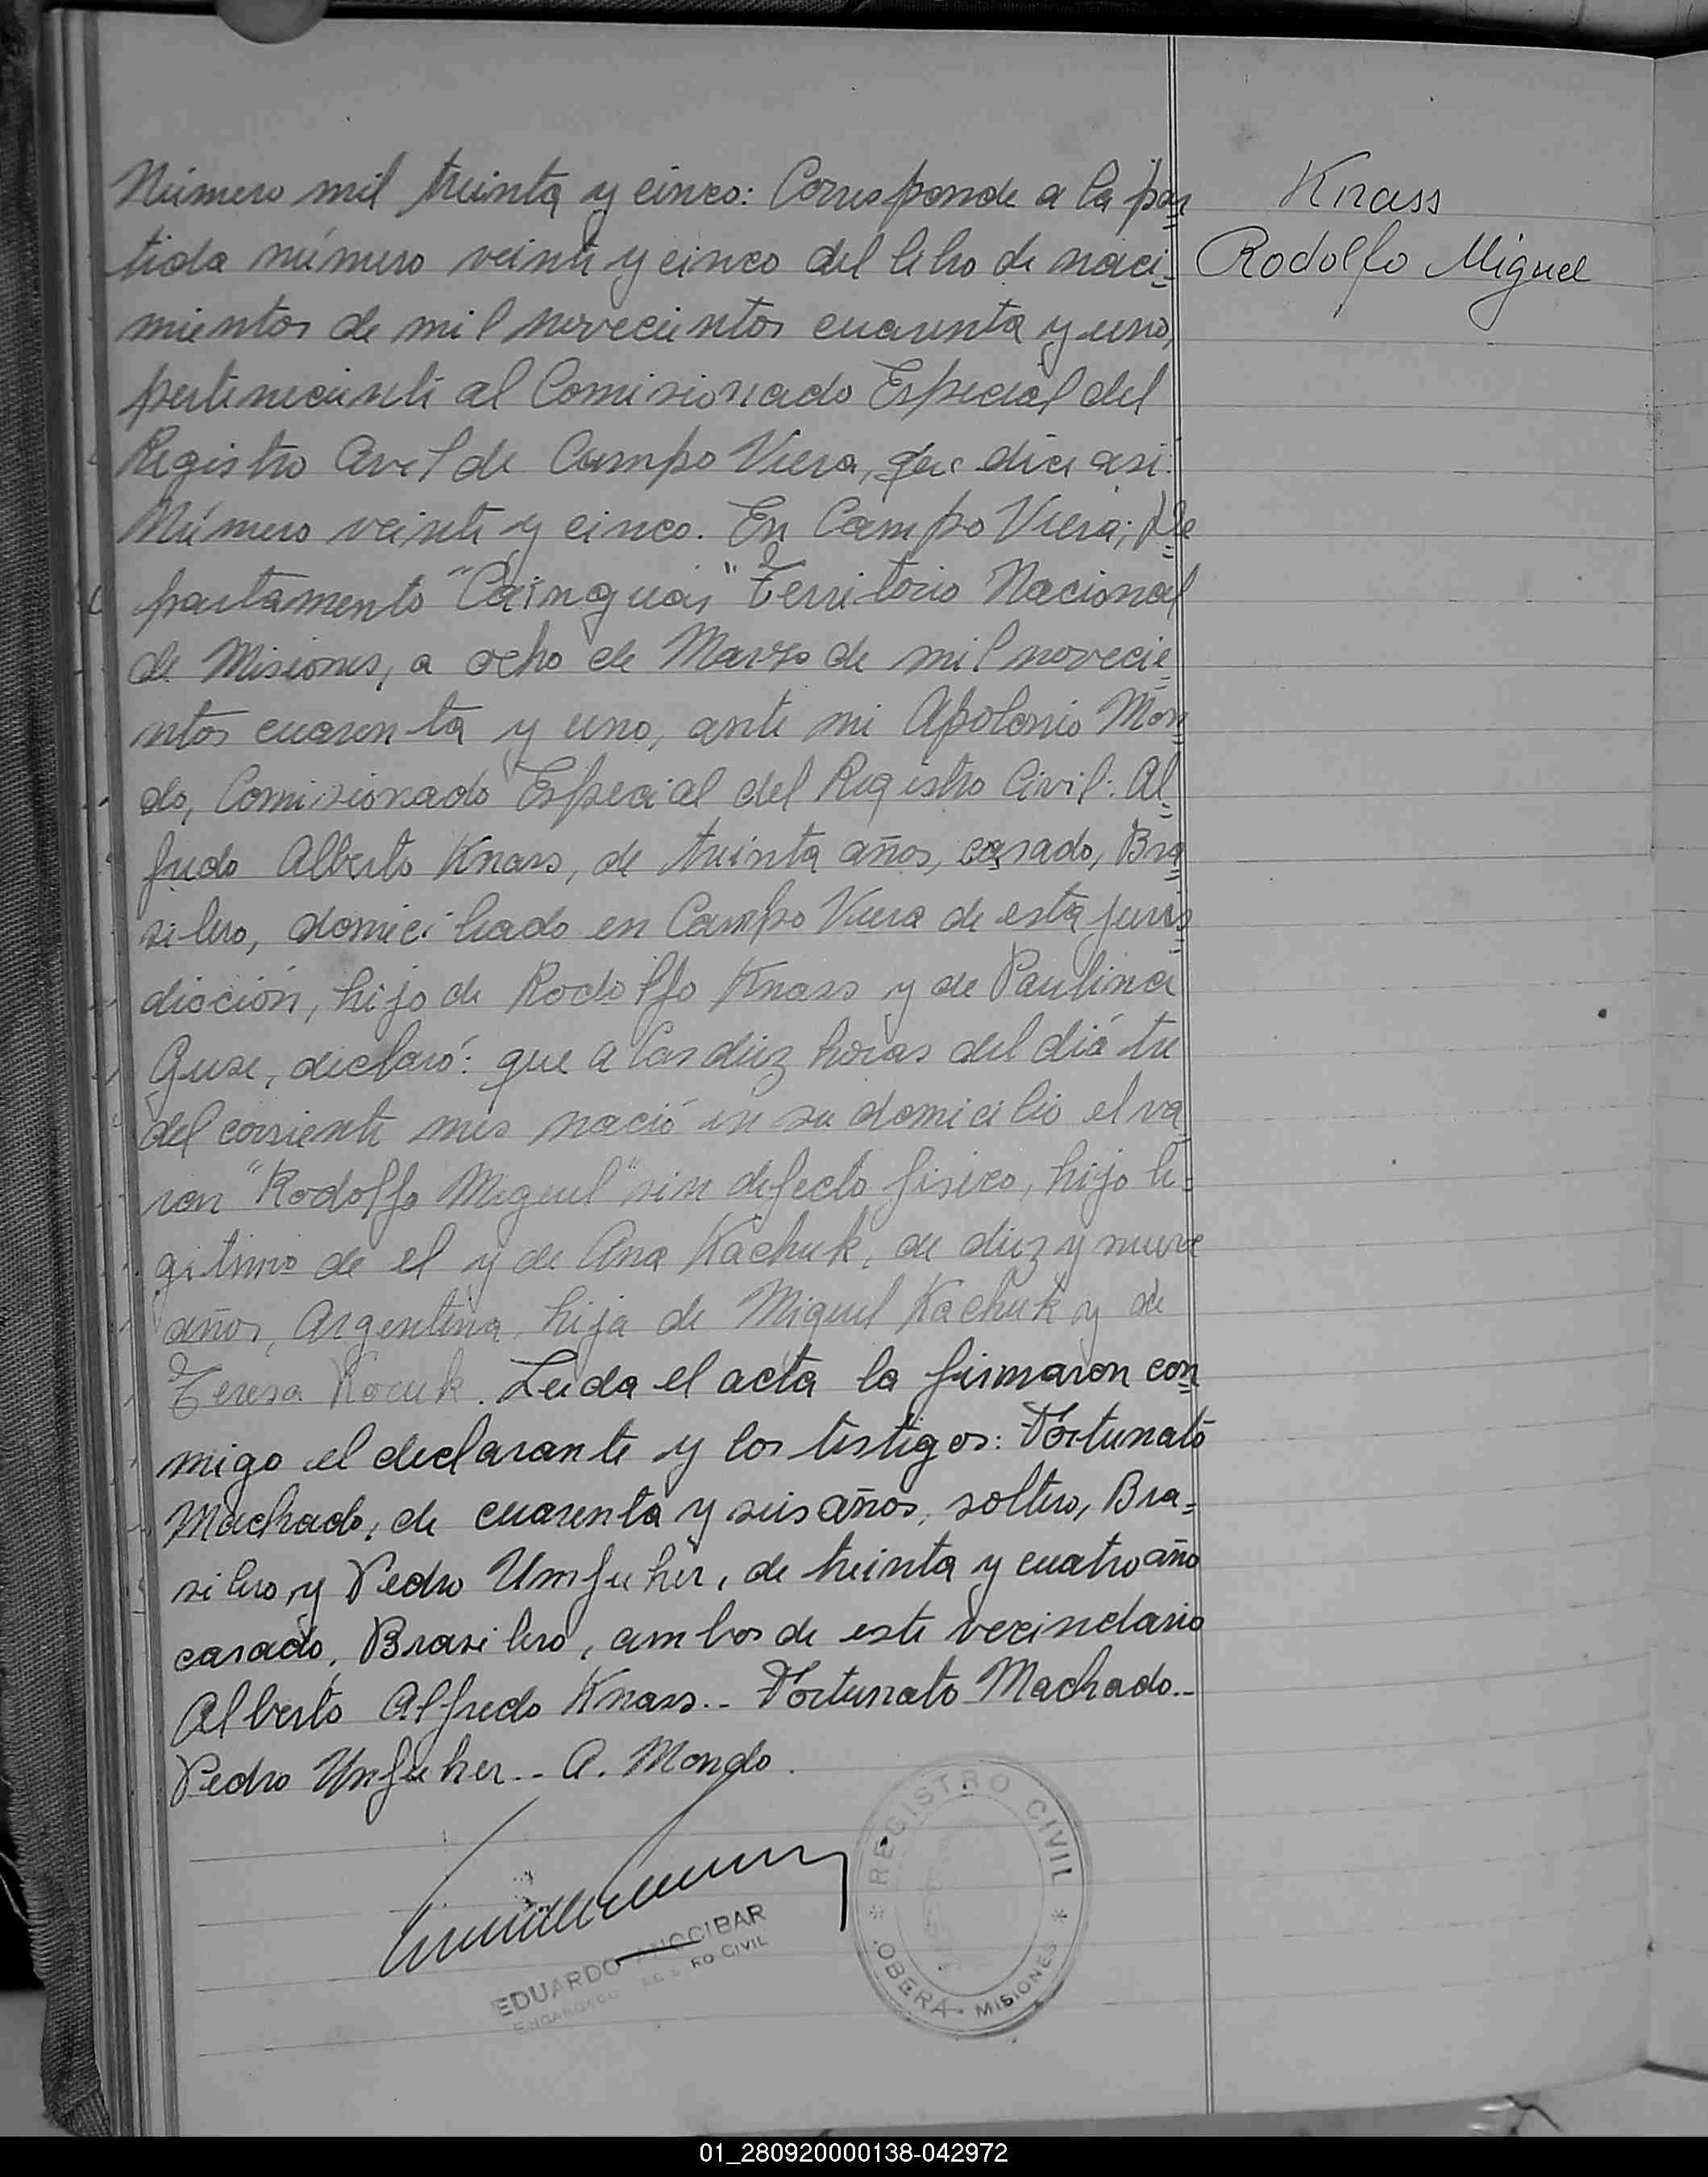 Número mil treinta y cinco: Corresponde a la par
tida número veinte y cinco del libro de naci-
mientos de mil novecientos cuarenta y uno,
perteneciente al Comisionado Especial del
Registro Civil de Campo Viera, que dice así:
Número veinte y cinco. En Campo Viera; De
partamento "Cainguás" Territorio Nacional
de Misiones, a ocho de Marzo de mil novecie
ntos cuarenta y uno, ante mi Apolonio Mon
do, Comisionado Especial del Registro Civil: Al
fredo Alberto Knass, de treinta años, casado, Bra
silero, domiciliado en Campo Viera de esta juris
dicción, hijo de Rodolfo Knass y de Paulina
Guse, declaró: que a las diez horas del diá tre
del corriente mes nació en su domicilio el va
ron "Rodolfo Miguel" sin defecto fisico, hijo le-
gitimo de el y de Ana Kachuk, de diez y nueve
años, Argentina, hija de Miguel Kachuk y de
Teresa Kocuk. Leida el acta la firmaron con
migo el declarante y los testigos: Fortunato
Machado, de cuarenta y seis años, soltero, Bra-
silero y Pedro Umfuher, de treinta y cuatro año
casado, Brasilero, ambos de este vecindario
Alberto Alfredo Knass.- Fortunato Machado.-
Pedro Unfuher.- A. Mondo.
Knass
Rodolfo Miguel
EDUARDO
RO CIVIL
REGISTRO CIVIL
* OBERÁ - MISIONES *
01_280920000138-042972